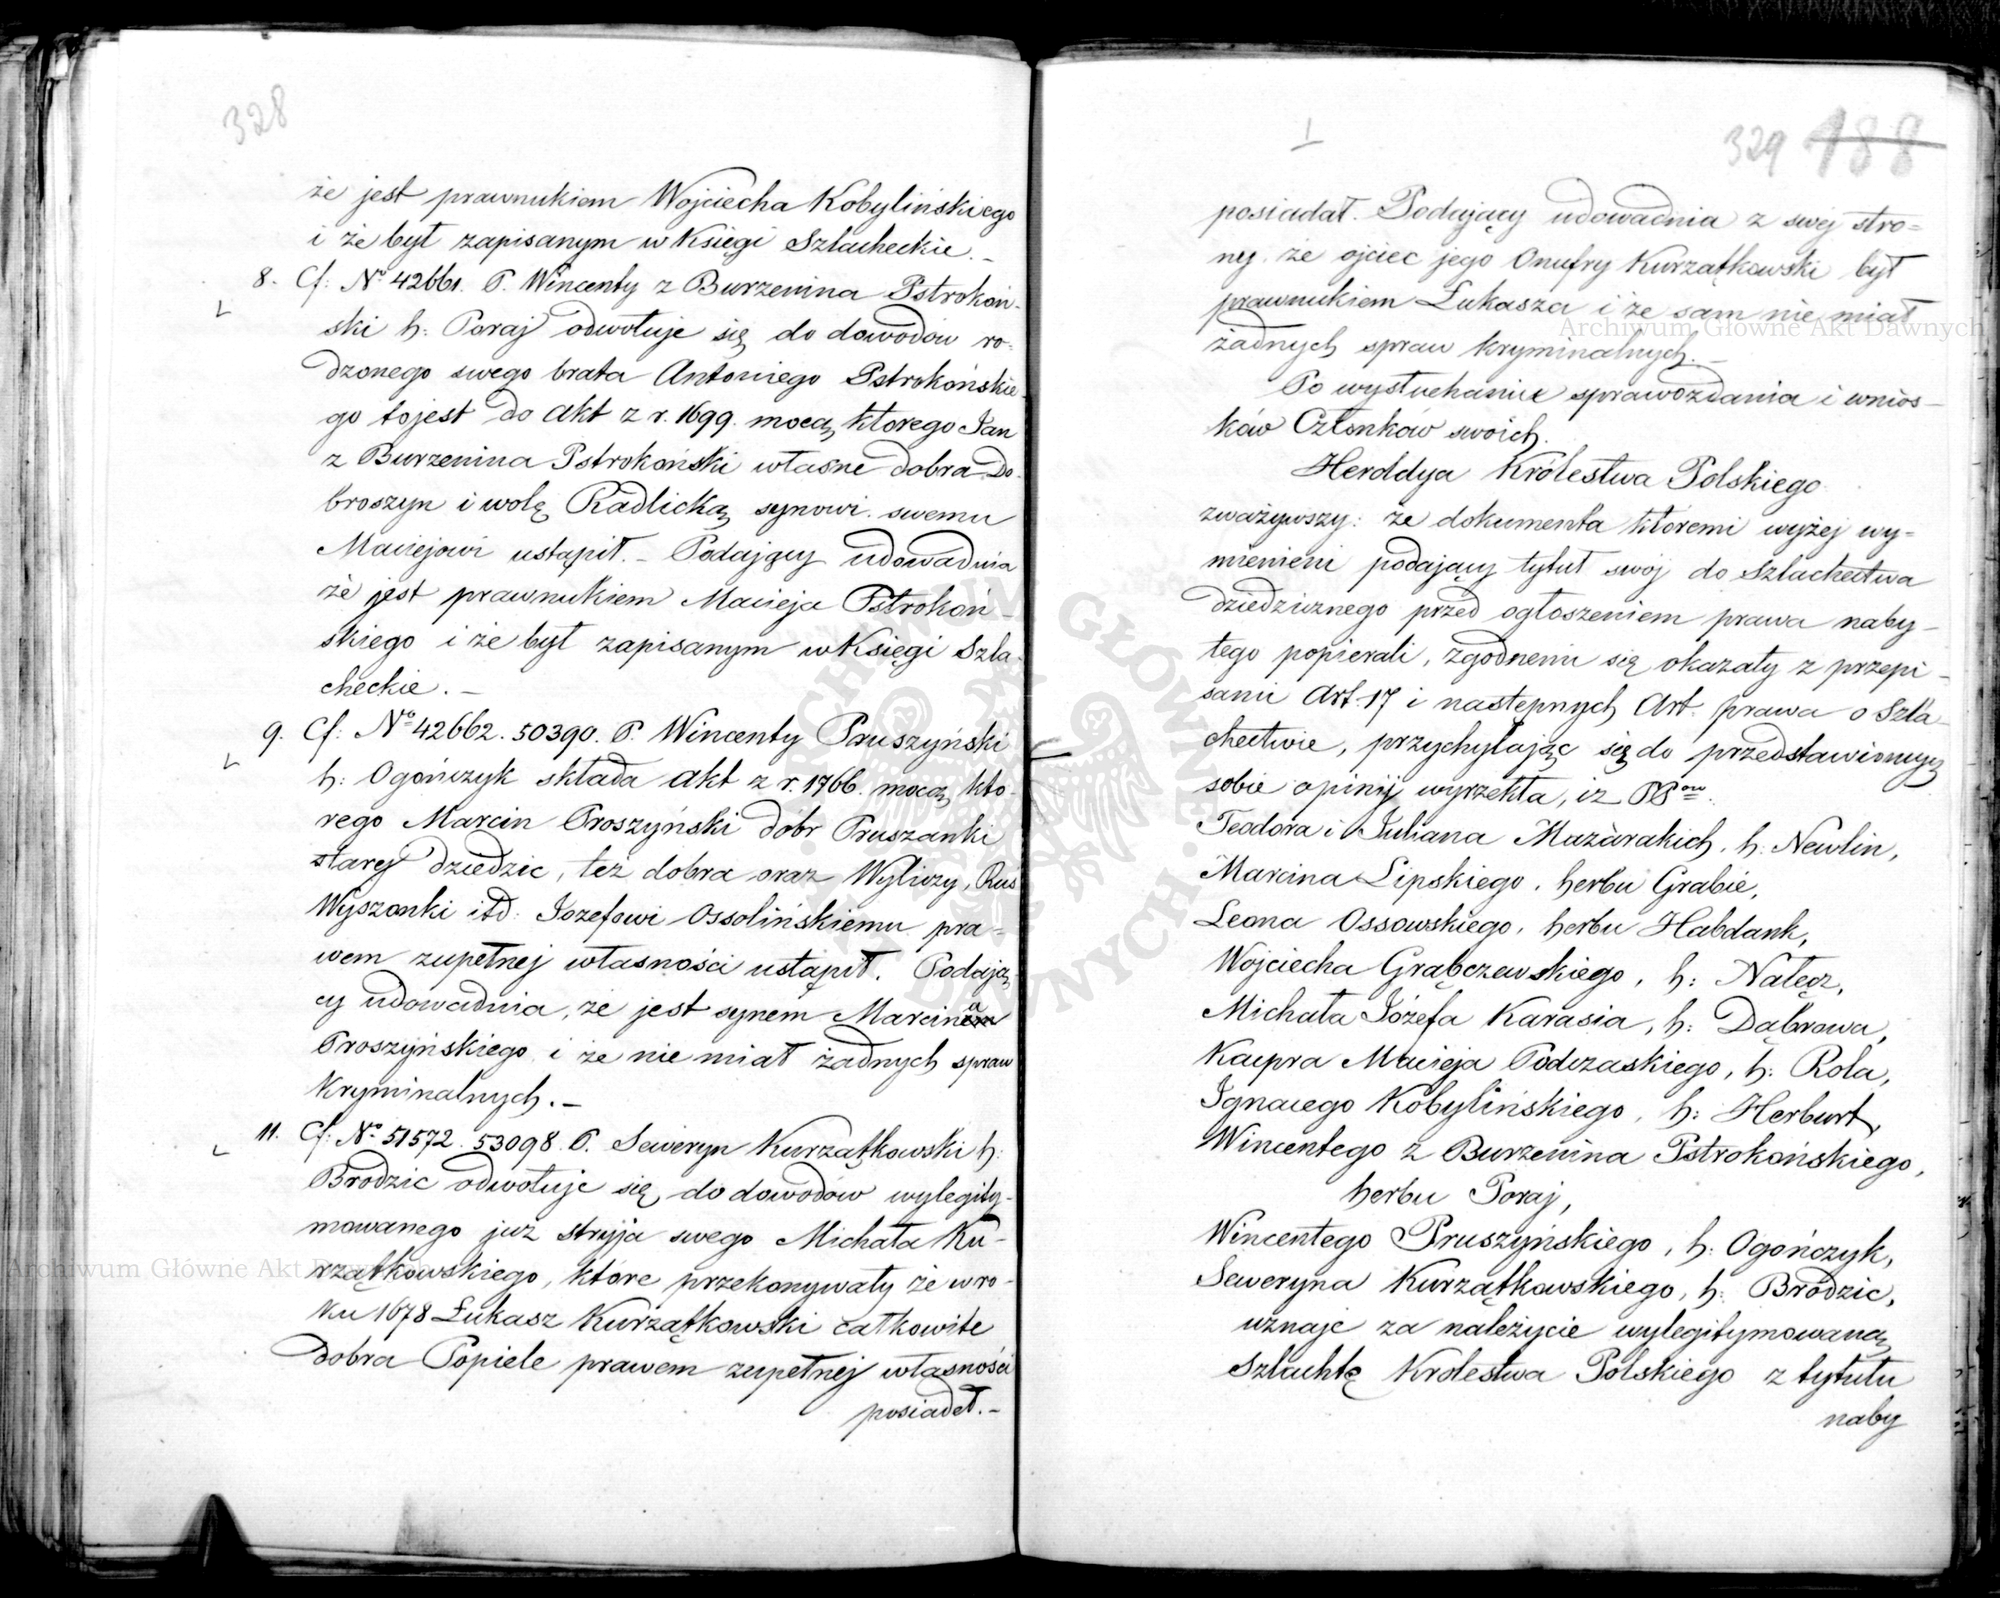 328
że jest prawnukiem Wojciecha Kobylińskiego
i że był zapisanym w Księgi Szlacheckie. –
8. Cf: No 42661. P. Wincenty z Burzenina Pstrokoń-
ski h: Poraj odwołuje się do dowodów ro-
dzonego swego brata Antoniego Pstrokońskie-
go tojest do Akt z r. 1699. mocą którego Jan
z Burzenina Pstrokoński własne dobra Do-
broszyn i wolę Radlicką synowi swemu
Maciejowi ustąpił. – Podający udowadnia
że jest prawnukiem Macieja Pstrokoń-
skiego i że był zapisanym w Księgi Szla-
checkie. –
9. Cf: No 42662. 50390. P. Wincenty Pruszyński
h: Ogończyk składa Akt z r. 1766. mocą któ-
rego Marcin Proszyński dóbr Pruszanki
starej dziedzic, też dobra oraz Wyliczy, Rus
Wyszonki itd. Józefowi Ossolińskiemu pra-
wem zupełnej własności ustąpił. Podają-
cy udowadnia, że jest synem Marcina
Proszyńskiego i że nie miał żadnych spraw
Kryminalnych. –
11. Cf: No 51572. 53098. P. Seweryn Kurzątkowski h:
Brodzic odwołuje się do dowodów wylegity-
mowanego już stryja swego Michała Ku-
rzątkowskiego, które przekonywały że w ro-
ku 1678 Łukasz Kurzątkowski całkowite
dobra Popiele prawem zupełnej własności
posiadał. –
329 188
posiadał. Podający udowadnia z swej stro-
ny. że ojciec jego Onufry Kurzątkowski był
prawnukiem Łukasza i że sam nie miał
żadnych spraw kryminalnych. –
Po wysłuchaniu sprawozdania i wnios-
ków Członków swoich.
Heroldya Królestwa Polskiego
zważywszy: że dokumenta któremi wyżej wy-
mienieni podający tytuł swój do Szlachectwa
dziedzicznego przed ogłoszeniem prawa naby-
tego popierali, zgodnemi się okazały z przepi-
sami Art. 17 i następnych Art. prawa o Szla-
chectwie, przychylając się do przedstawionych
sobie opinij wyrzekła, iż PPow.
Teodora i Juliana Mazarakich, h: Newlin,
Marcina Lipskiego, herbu Grabie,
Leona Ossowskiego, herbu Habdank,
Wojciecha Grąbczewskiego, h: Nałęcz,
Michała Józefa Karasia, h: Dąbrowa,
Kacpra Macieja Podczaskiego, h: Rola,
Ignacego Kobylińskiego, h: Herburt,
Wincentego z Burzenina Pstrokońskiego,
herbu Poraj,
Wincentego Pruszyńskiego, h: Ogończyk,
Seweryna Kurzątkowskiego, h: Brodzic,
uznaje za należycie wylegitymowaną
Szlachtę Królestwa Polskiego z tytułu
naby
Archiwum Główne Akt Dawnych
Archiwum Główne Akt Dawnych